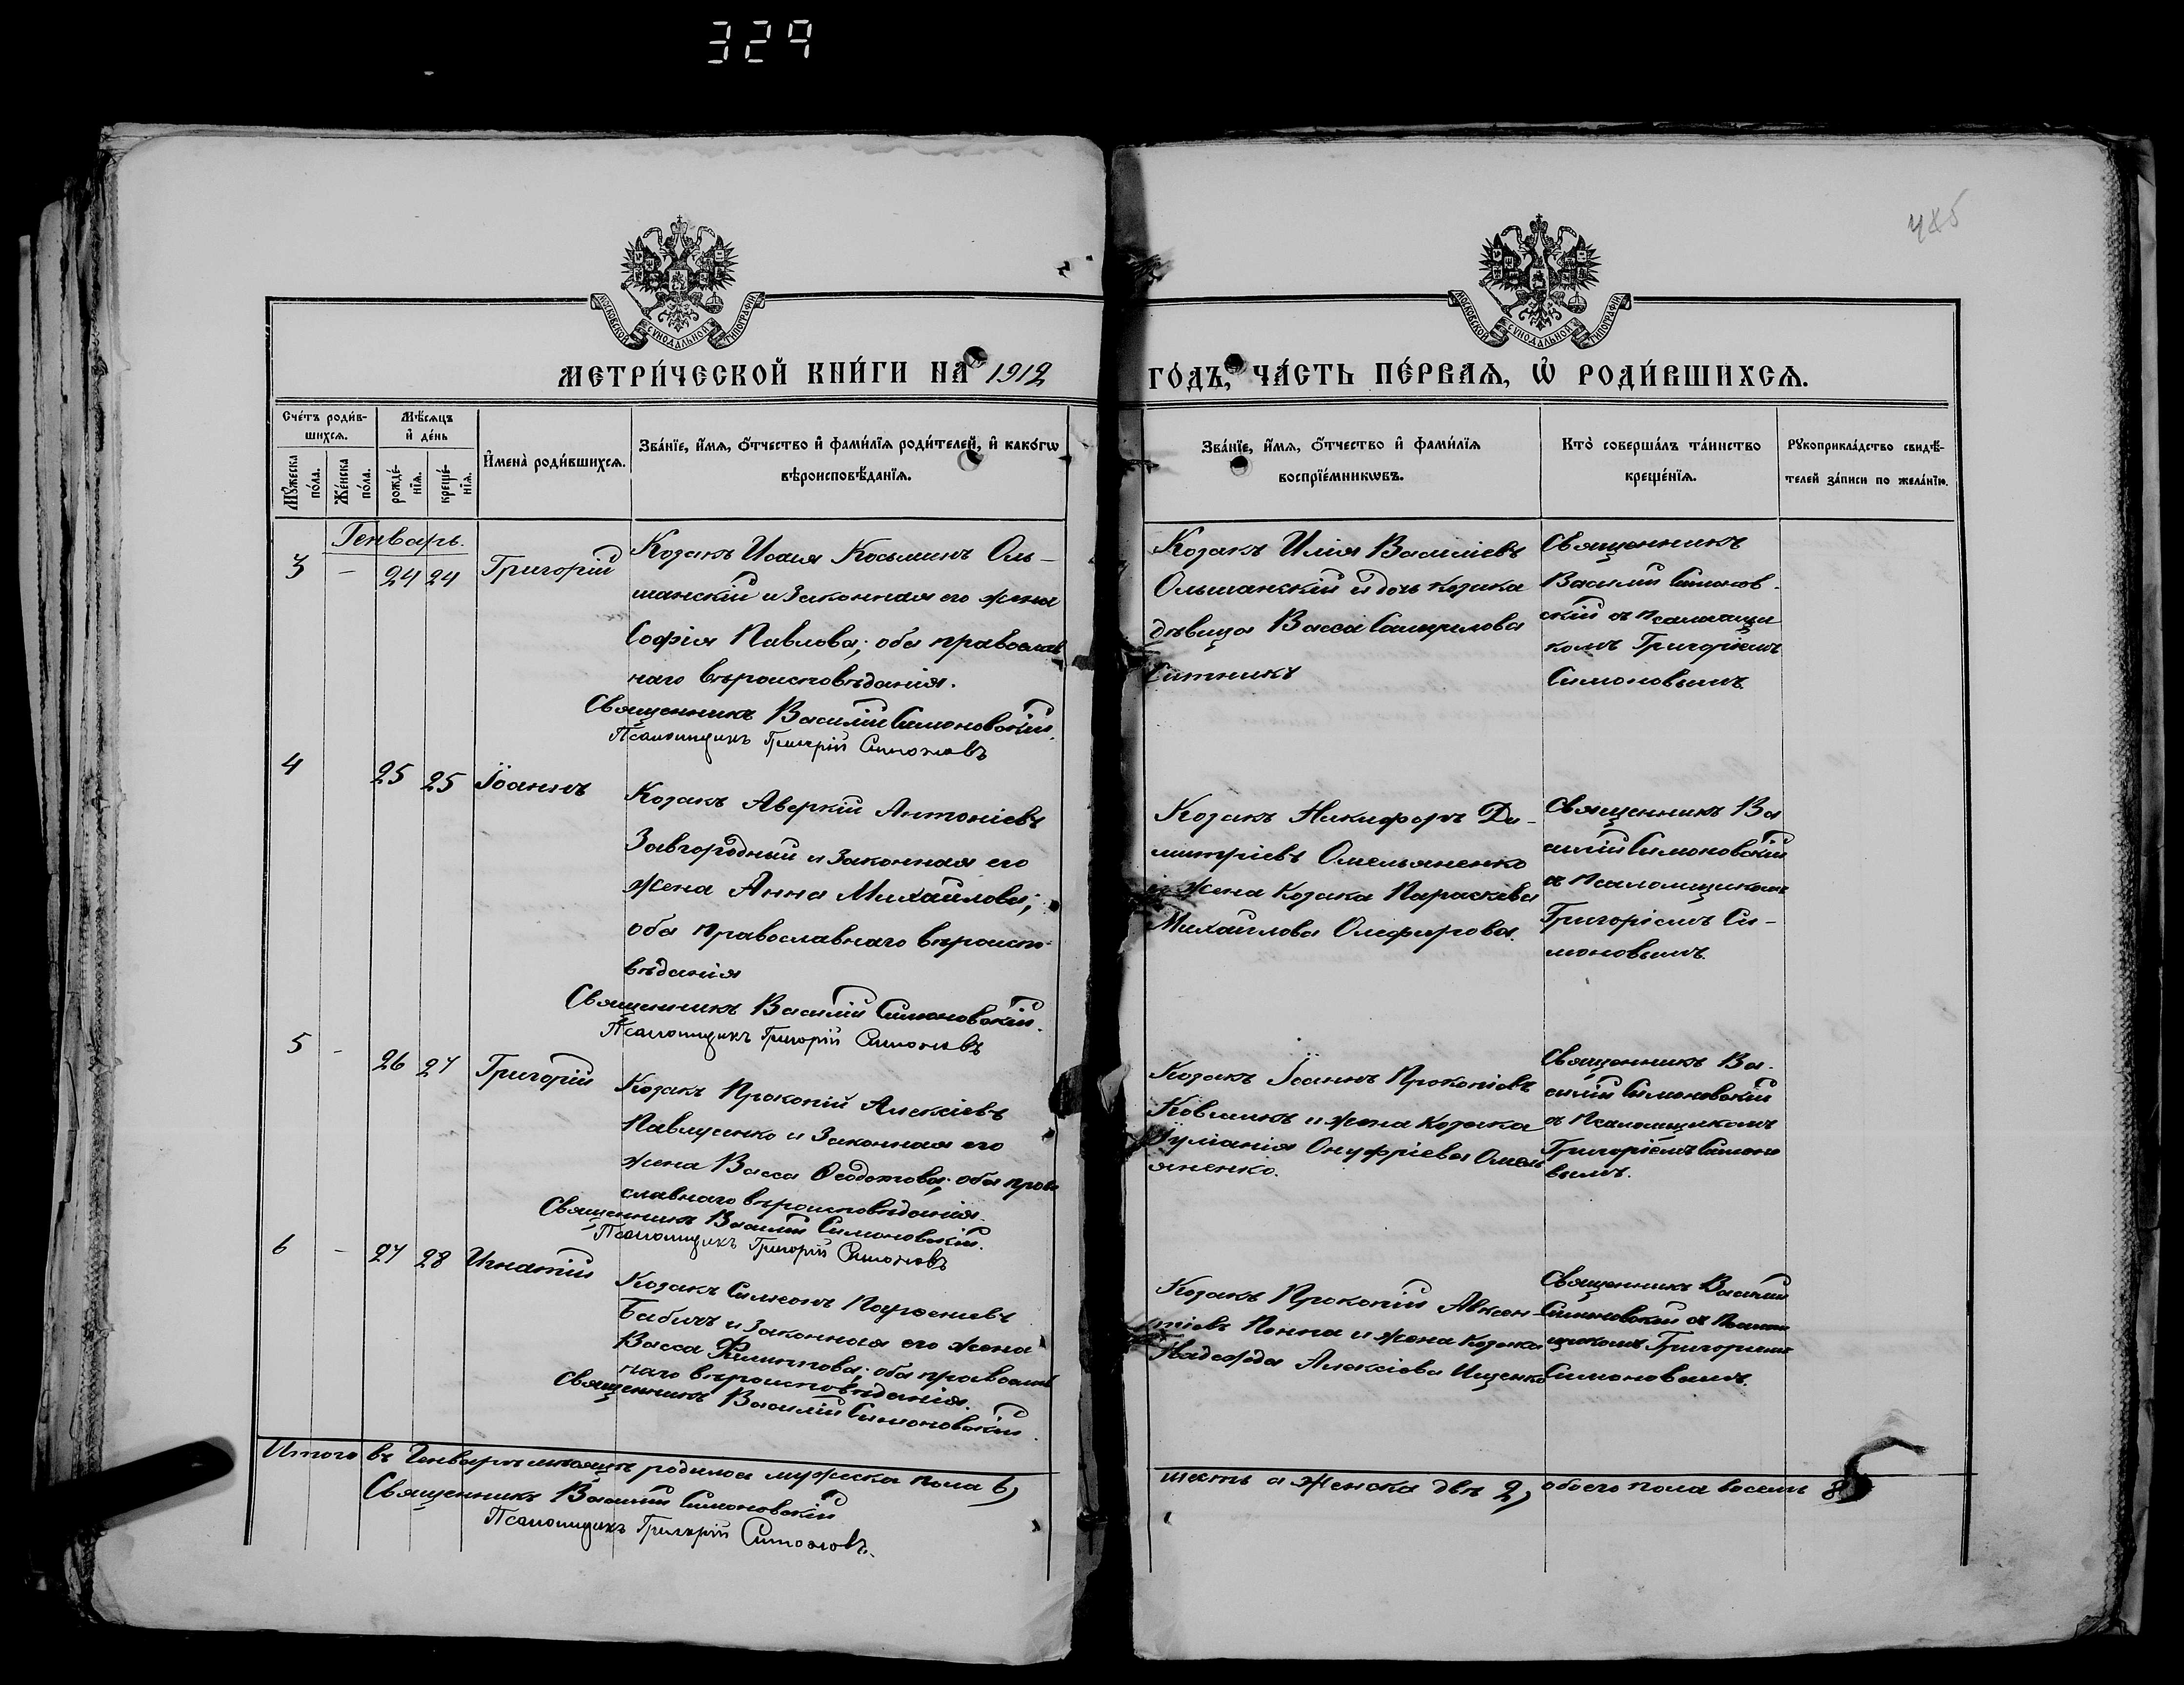 329
485
МОСКОВСКОЙ СУНОДАЛЬНОЙ ТИПОГРАФІИ
МОСКОВСКОЙ СУНОДАЛЬНОЙ ТИПОГРАФІИ
МЕТРИ́ЧЕСКОЙ КНИ́ГИ НА 1912 ГО́ДЪ, ЧА́СТЬ ПЕ́РВАѦ, Ѡ҆ РОДИ́ВШИХСѦ.
Сче́тъ роди́в-
шихсѧ.
Мꙋ́жеска по́ла.
Же́нска по́ла.
Мѣ́сѧцъ
и҆ де́нь
рожде́-нїѧ.
креще́-нїѧ.
И҆мена̀ роди́вшихсѧ.
Зва́нїе, и҆́мѧ, ѻ҆́тчество и҆ фами́лїѧ роди́телей, и҆ како́гѡ
вѣроисповѣ́данїѧ.
Зва́нїе, и҆́мѧ, ѻ҆́тчество и҆ фами́лїѧ
воспрїе́мникѡвъ.
Кто̀ соверша́лъ та́инство
креще́нїѧ.
Рꙋкоприкла́дство свидѣ́-
телей за́писи по жела́нїю.
Генварь.
3 - 24 24 Григорій
Козакъ Исаія Косьминъ Оль-
шанскій и законная его жена
Софія Павлова; оба православ
наго вѣроисповѣданія.
Священникъ Василій Симоновскій.
Псаломщикъ Григорій Симоновъ
Козакъ Илія Василіевъ
Ольшанскій и дочь козака
дѣвица Васса Самуилова
Ситникъ
Священникъ
Василій Симонов-
скій съ псаломщи
комъ Григоріемъ
Симоновымъ
4 25 25 Іоаннъ
Козакъ Аверкій Антоніевъ
Завгородный и законная его
жена Анна Михайлова;
оба православнаго вѣроиспо-
вѣданія
Священникъ Василій Симоновскій.
Псаломщикъ Григорій Симоновъ
Козакъ Никифоръ Ди-
митріевъ Омельяненко
и жена козака Параскева
Михайлова Олефирова.
Священникъ Ва
силій Симоновскій
съ псаломщикомъ
Григоріемъ Си-
моновымъ.
5 - 26 27 Григорій
Козакъ Прокопій Алексіевъ
Павлусенко и законная его
жена Васса Ѳеодотова; оба право
славнаго вѣроисповѣданія.
Священникъ Василій Симоновскій.
Псаломщикъ Григорій Симоновъ
Козакъ Іоаннъ Прокопіевъ
Ковшикъ и жена козака
Іуліанія Онуфріева Омель
яненко.
Священникъ Ва-
силій Симоновскій
съ псаломщикомъ
Григоріемъ Симоно
вымъ.
6 - 27 28 Игнатій
Козакъ Симеонъ
Бабичъ и законная его жена
Васса Филиппова; оба православ
наго вѣроисповѣданія.
Священникъ Василій Симоновскій
Козакъ Прокопій Авксен-
тіевъ и жена козака
Надежда Алексіева Ищенко
Священникъ Василій
Симоновскій съ псалом
щикомъ Григоріемъ
Симоновымъ.
Итого въ Генварѣ мѣсяцѣ родилося мужеска пола 6)
шесть а женска двѣ 2) обоего пола восемь 8
Священникъ Василій Симоновскій
Псаломщикъ Григорій Симоновъ.